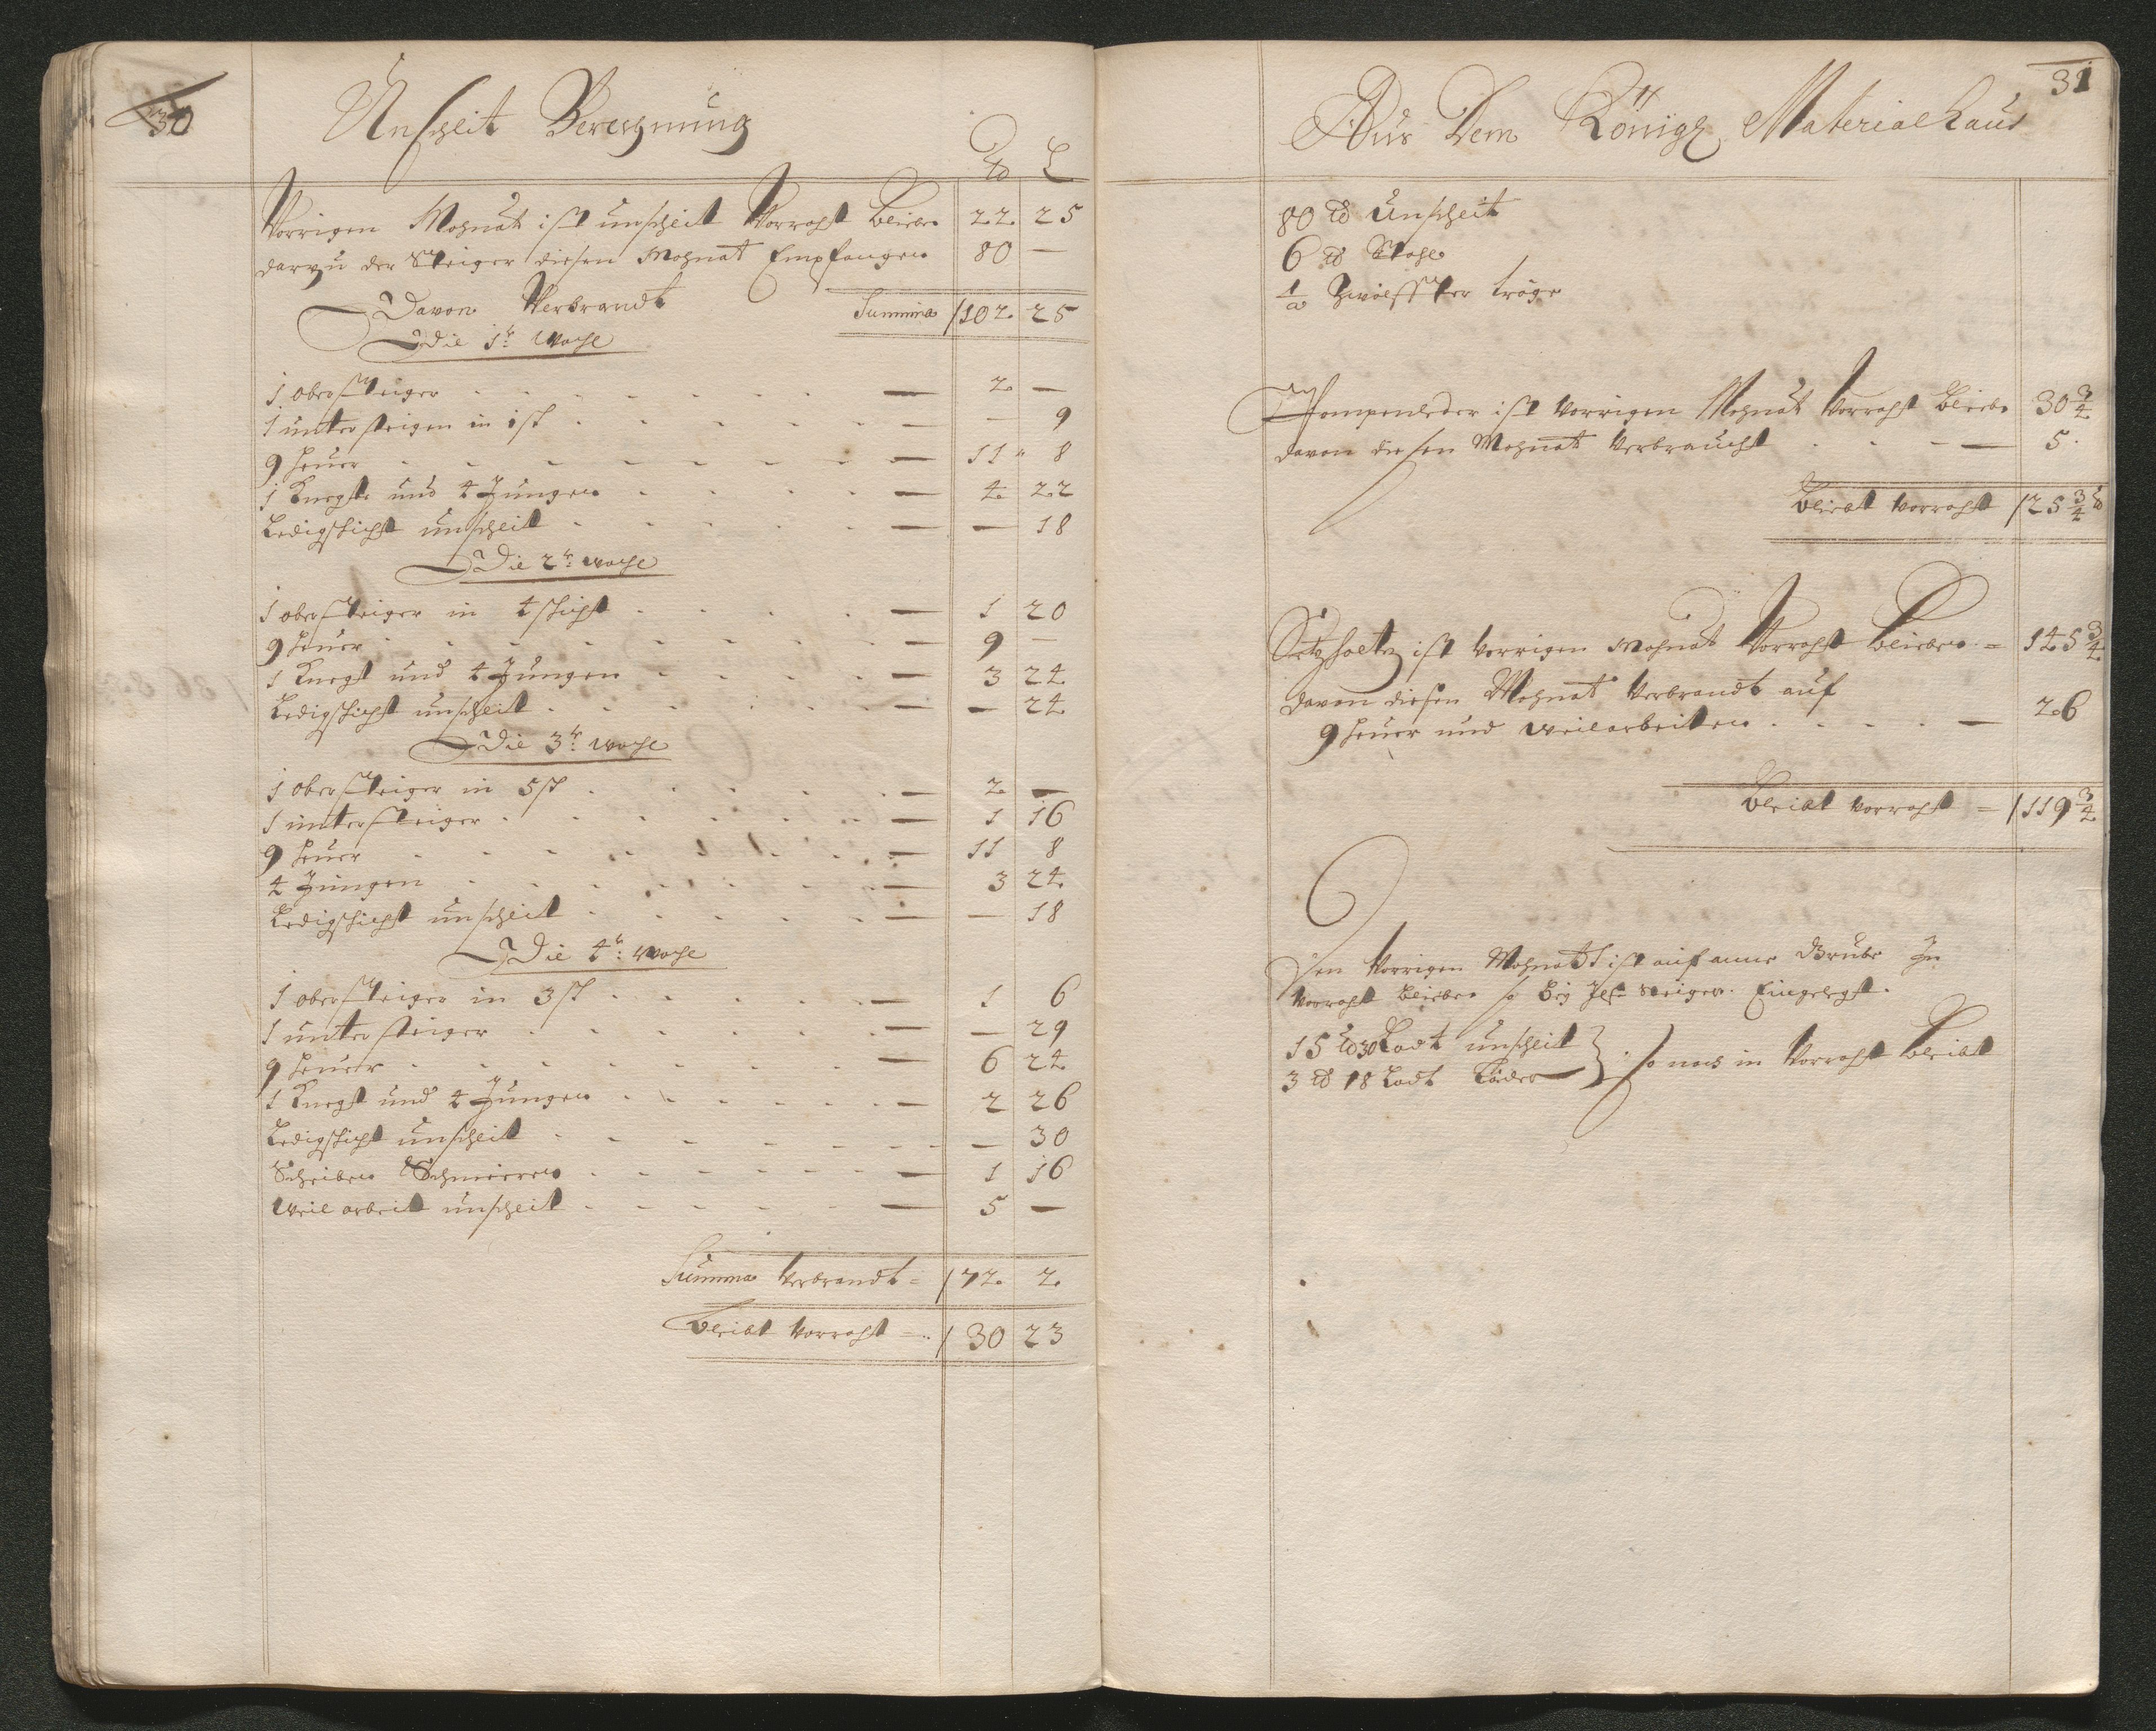 30
Unscheit Berechnung
℔ L
Vorrigen Mohnat ist unscheit Vorraht blieben 22 25
darzu der Steiger diesen Mohnat Empfangen 80 —
Davon Verbrandt Summa /102 25
Die 1te: Woche
1 obersteiger — 2 —
1 untersteigen in 1 sch — — 9
9 heuer — 11 " 8
1 Knegte und 4 Jungen — 4 22
Ledigschicht unscheit — — 18
Die 2te: woche
1 obersteiger in 4 schicht — 1 20
9 heuer — 9 —
1 Knegt und 4 Jungen — 3 24
Ledigschicht unscheit — — 24
Die 3te: woche
1 obersteiger in 5 sch — 2 —
1 untersteiger — 1 16
9 heuer — 11 8
4 Jungen — 3 24
Ledigschicht unscheit — — 18
Die 4te: woche
1 obersteiger in 3 sch — 1 6
1 untersteiger — — 29
9 heuer — 6 24
1 Knegt und 4 Jungen — 2 26
Ledigschicht unscheit — 30
Scheiben Schmieren — 1 16
Weil arbeit unscheit — 5 —
Summa Verbrandt = /72 2
bleibt Vorraht = /30 23
31
Aus Dem Königl Materialhaus
80 ℔ Unscheit
6 ℔ Stahl
1/2 tröge
Pompenleder ist Vorrigen Mohnat Vorraht blieben 30 3/4
davon diesen Mohnat Verbraucht — 5
bleibt Vorraht /25 3/4 ℔
Setzholtz ist Vorrigen Mohnat Vorraht blieben = 145 3/4
davon diesen Mohnat Verbrandt auf
9 heuer und weilarbeiten — 26
bleibt Vorraht = /119 3/4
Den Vorrigen Mohnat ist auf Grube In
Vorraht blieben so bey Steiger Eingelegt.
15 ℔ 30 Lodt unscheit
3 ℔ 18 Lodt Läder } so noch in Vorraht bleibt